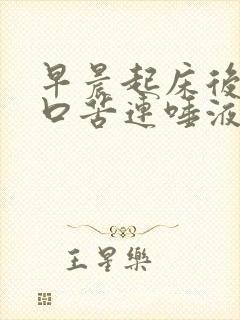 早晨起床後
口苦連唾液
王星樂